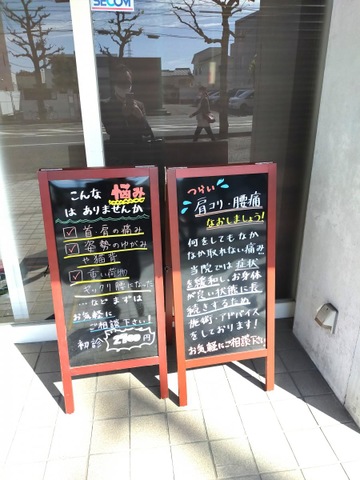 SECOM
こんな悩み
はありませんか
首・肩の痛み
姿勢のゆがみ
や猫背
重い荷物
ぎっくり腰になった
…などまずは
お気軽に
ご相談下さい!
初診2700円
つらい
肩コリ・腰痛
なおしましょう!
何をしてもなか
なか取れない痛み
当院では症状
を緩和し、お身体
が良い状態に長
続きするため
施術・アドバイス
をしております!
お気軽にご相談下さい